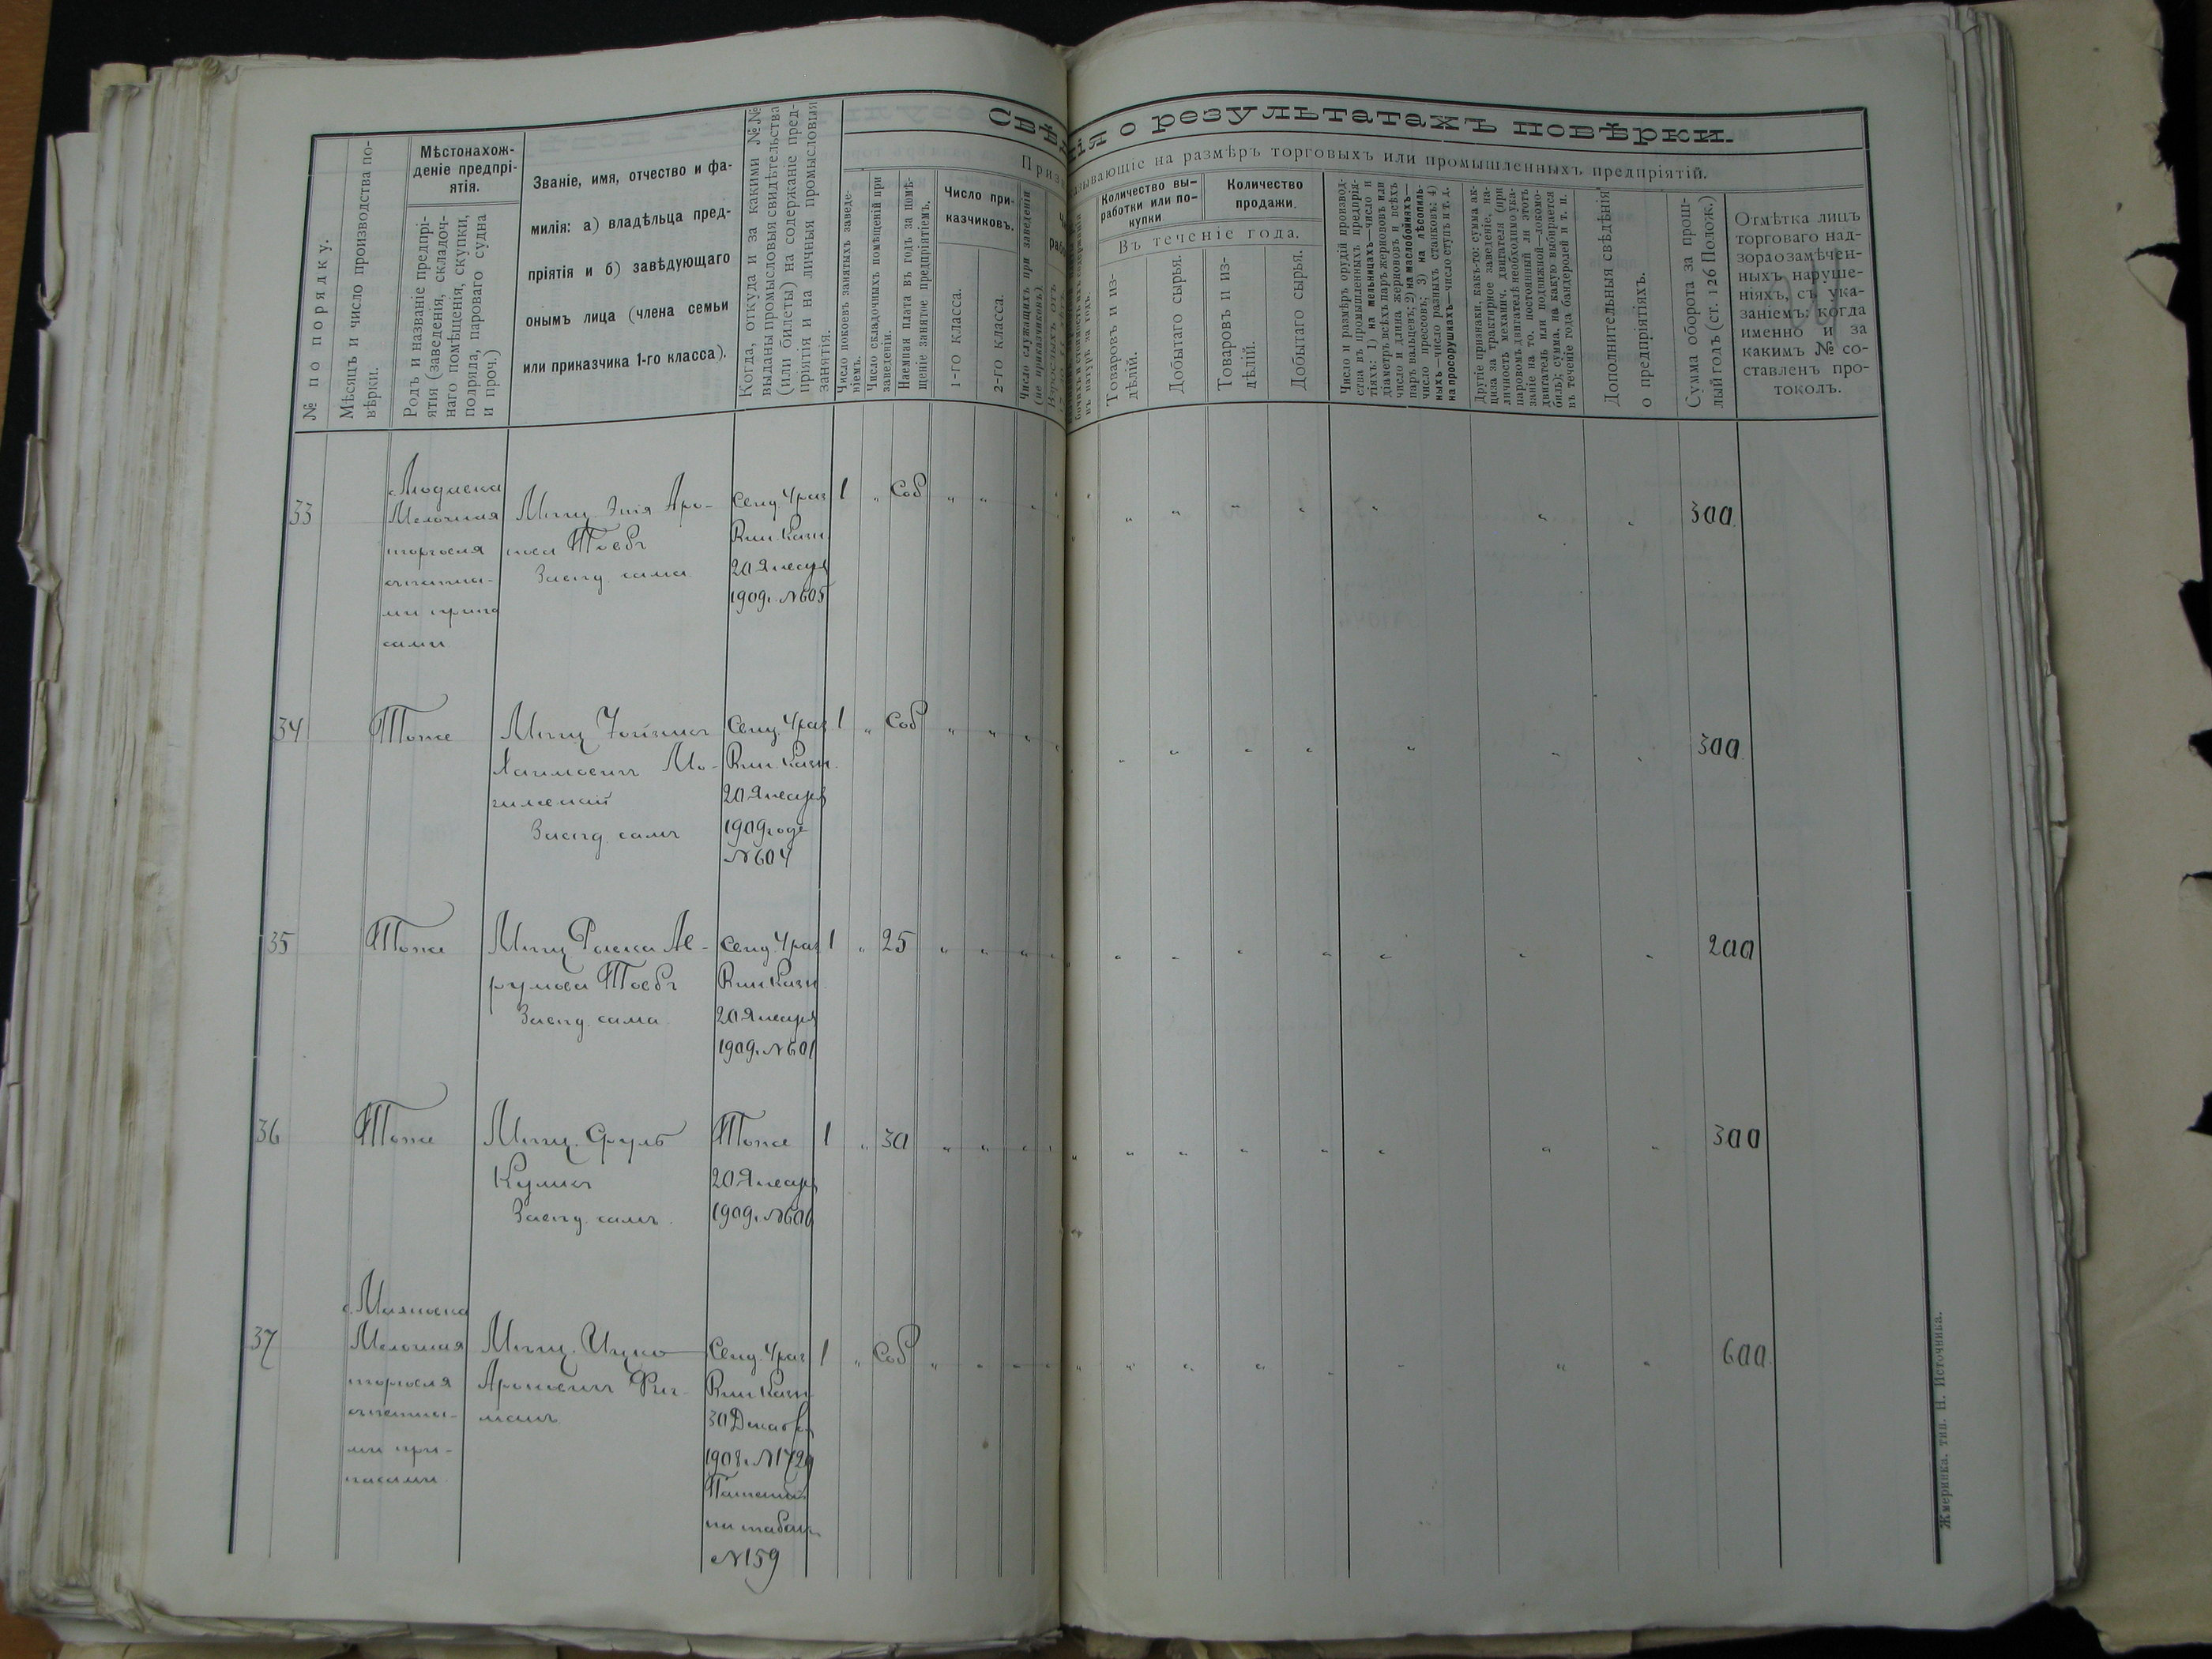 Свѣ
нія о результатахъ повѣрки.
Призн
азывающіе на размѣръ торговыхъ или промышленныхъ предпріятій.
№ по порядку.
Мѣсяцъ и число производства по-
вѣрки.
Мѣстонахож-
деніе предпрі-
ятія.
Родъ и названіе предпрі-
ятія (заведенія, складоч-
наго помѣщенія, скупки,
подряда, пароваго судна
и проч.)
Званіе, имя, отчество и фа-
милія: а) владѣльца пред-
пріятія и б) завѣдующаго
онымъ лица (члена семьи
или приказчика 1-го класса).
Когда, откуда и за какими №№
выданы промысловыя свидѣтельства
(или билеты) на содержаніе пред-
пріятія и на личныя промысловыя
занятія.
Число покоевъ занятыхъ заведе-
ніемъ.
Число складочныхъ помѣщеній при
заведеніи.
Наемная плата въ годъ за помѣ-
щеніе занятое предпріятіемъ.
Число при-
казчиковъ.
1-го класса.
2-го класса.
Число служащихъ при заведеніи
(не приказчиковъ).
Количество вы-
работки или по-
купки
Количество
продажи.
Въ теченіе года.
Товаровъ и из-
дѣлій.
Добытаго сырья.
Товаровъ и из-
дѣлій.
Добытаго сырья.
Число и размѣръ орудій производ-
ства въ промышленныхъ предпрія-
тіяхъ: 1) на мельницахъ—число и
діаметръ всѣхъ паръ жернововъ или
число и длина жернововъ и всѣхъ
паръ вальцевъ; 2) на маслобойняхъ—
число прессовъ; 3) на лѣсопиль-
ныхъ—число разныхъ станковъ; 4)
на просорушкахъ—число ступъ и т. д.
Другіе признаки, какъ-то: сумма ак-
циза за трактирное заведеніе, на-
личность механич. двигателя (при
паровомъ двигателѣ необходимо ука-
заніе на то, постоянный ли этотъ
двигатель или подвижной—локомо-
биль); сумма, на какую выбирается
въ теченіе года бандеролей и т. п.
Дополнительныя свѣдѣнія
о предпріятіяхъ.
Сумма оборота за прош-
лый годъ (ст. 126 Полож.)
Отмѣтка лицъ
торговаго над-
зора о замѣчен-
ныхъ наруше-
ніяхъ, съ ука-
заніемъ: когда
именно и за
какимъ № со-
ставленъ про-
токолъ.
33
Мелочная
торговля
съѣстны-
ми припа
сами
Мѣщ. Эстя Аро-
нова Товбъ
Завѣд. сама
Свид. 4 раз
Вин. Казн.
20 Января
1909 г. №605
1 " Соб " "
300
34
Тоже
Хаимовичъ Мо-
гилевскій
Завѣд. самъ
Свид. 4 раз
Вин. Казн.
20 Января
1909 года
№604
1 " Соб " "
300
35
Тоже
Завѣд. сама
Свид. 4 раз
Вин. Казн.
20 Января
1909 г. №601
1 " 25 " "
200
36
Тоже
Мѣщ. Сруль
Завѣд. самъ
Тоже
20 Января
1909 г. №606
1 " 30 " "
300
37
Мелочная
торговля
съѣстны-
ми при-
пасами
Мѣщ. Ицко
Ароновичъ Фиш-
манъ
Свид. 4 раз
Вин. Казн
30 Декабр
1908 г. №1729
на табакъ
№159
1 " Соб " "
600
Жмеринка, тип. Н. Источника.